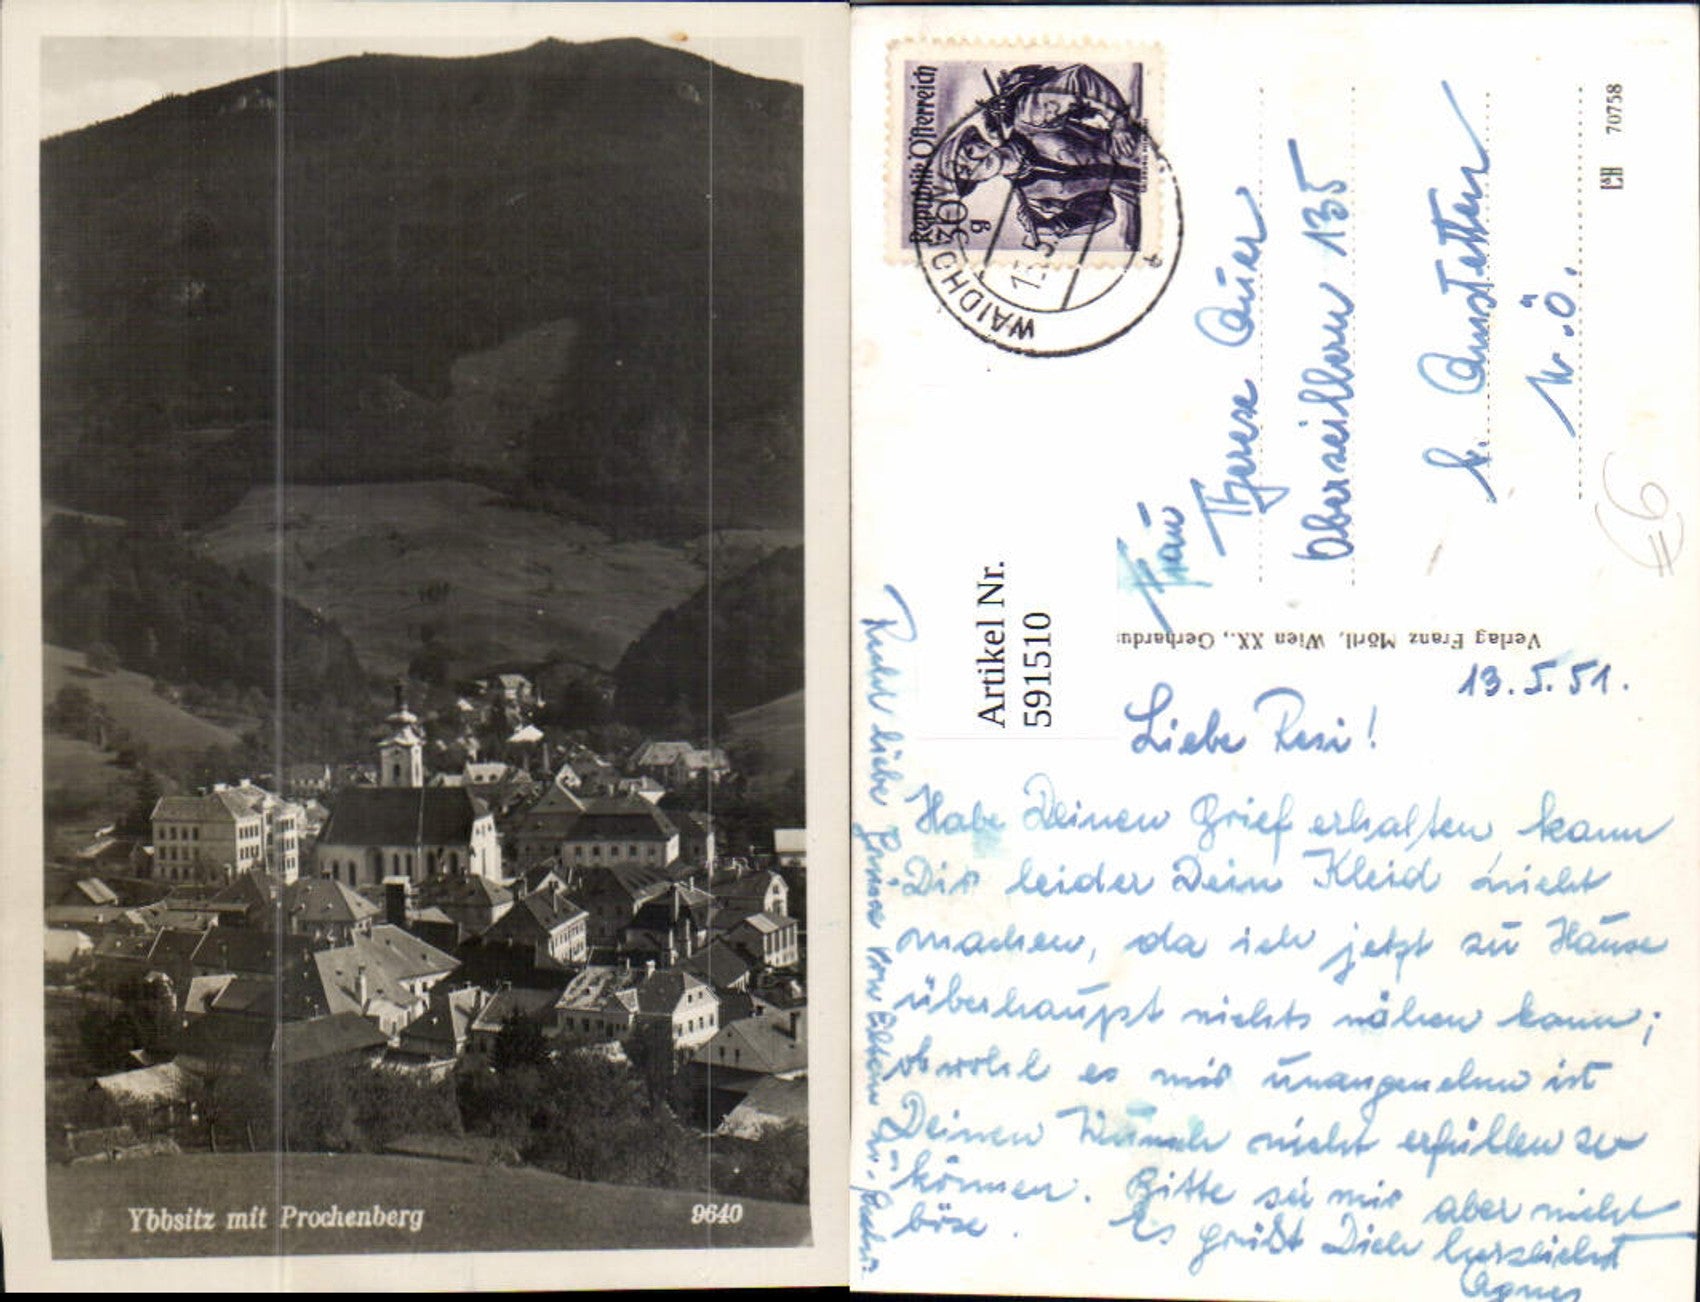 Ybbsitz mit Prochenberg
9640
Republik Österreich
30 g
WAIDHOFEN
13.5.
70758
Frau
Therese Auer
Oberseilbern 135
b. Amstetten
N.Ö.
€6
Artikel Nr.
591510
Verlag Franz Mörtl, Wien XX., Gerhardus
13.5.51.
Liebe Resi!
Habe Deinen Brief erhalten, kann
Dir leider Dein Kleid nicht
machen, da ich jetzt zu Hause
überhaupt nichts nähen kann;
obwohl es mir unangenehm ist
Deinen Wunsch nicht erfüllen zu
können. Bitte sei mir aber nicht
böse. Es grüßt Dich herzlichst
Agnes
Recht liebe Grüsse von Eltern